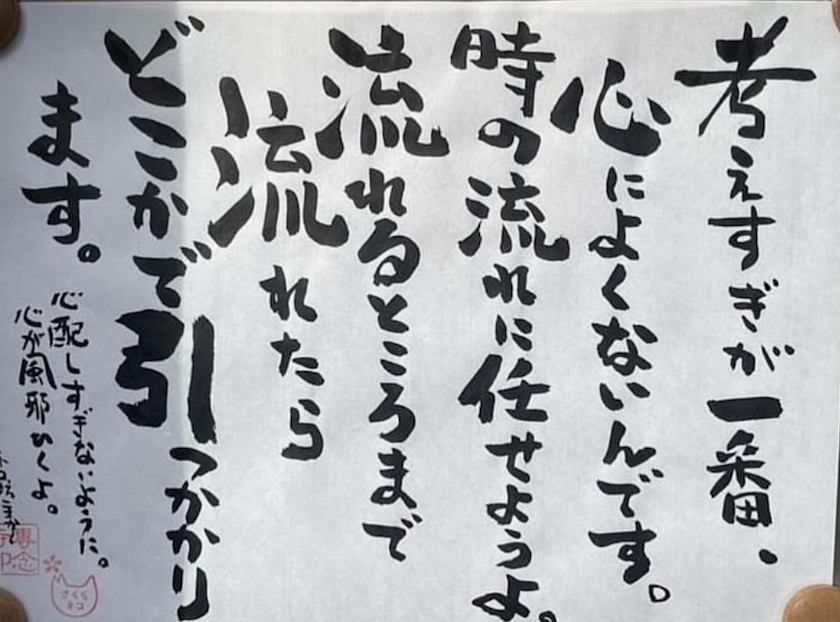 考えすぎが一番、
心によくないんです。
時の流れに任せようよ。
流れるところまで
流れたら
どこかで引っかかり
ます。
心配しすぎないように。
心が風邪ひくよ。
専念
寺印
さくら
ネコ